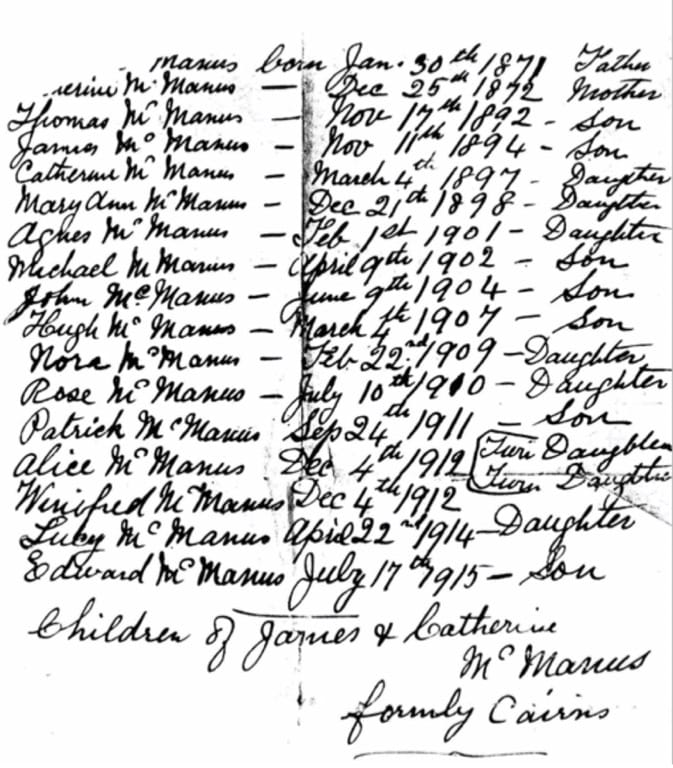 Manus born Jan. 30th 1871 Father
erine Mc Manus — Dec 25th 1872 Mother
Thomas Mc Manus — Nov 17th 1892 - Son
James Mc Manus — Nov 11th 1894 - Son
Catherine Mc Manus — March 4th 1897 - Daughter
Mary Ann Mc Manus — Dec 21th 1898 - Daughter
Agnes Mc Manus — Feb 1st 1901 - Daughter
Michael Mc Manus — April 9th 1902 - Son
John Mc Manus — June 9th 1904 - Son
Hugh Mc Manus — March 4th 1907 - Son
Nora Mc Manus — Feb 22nd 1909 - Daughter
Rose Mc Manus — July 10th 1910 - Daughter
Patrick Mc Manus Sep 24th 1911 - Son
Alice Mc Manus Dec 4th 1912 Twin Daughter
Winifred Mc Manus Dec 4th 1912 Twin Daughter
Lucy Mc Manus April 22nd 1914 - Daughter
Edward Mc Manus July 17th 1915 - Son
Children of James & Catherine
Mc Manus
formly Cairns